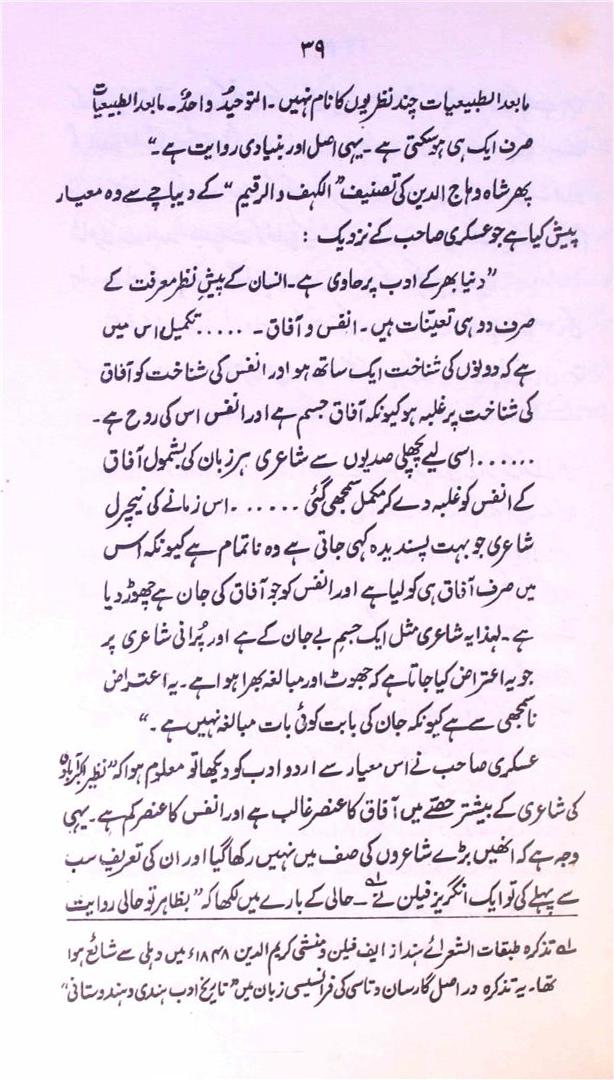 ۳۹
مابعد الطبیعیات چند نظریوں کا نام نہیں۔ التوحیدُ واحدٌ۔ مابعد الطبیعیات
صرف ایک ہی ہو سکتی ہے۔ یہی اصل اور بنیادی روایت ہے۔“
پھر شاہ وہاج الدین کی تصنیف ”الکہف والرقیم“ کے دیباچے سے وہ معیار
پیش کیا ہے جو عسکری صاحب کے نزدیک :
”دنیا بھر کے ادب پر حاوی ہے۔ انسان کے پیشِ نظر معرفت کے
صرف دو ہی تعینات ہیں۔ انفس و آفاق۔ ..... تکمیل اس میں
ہے کہ دونوں کی شناخت ایک ساتھ ہو اور انفس کی شناخت کو آفاق
کی شناخت پر غلبہ ہو کیونکہ آفاق جسم ہے اور انفس اس کی روح ہے۔
...... اسی لیے پچھلی صدیوں سے شاعری ہر زبان کی بشمول آفاق
کے انفس کو غلبہ دے کر مکمل سمجھی گئی ...... ۔ اس زمانے کی نیچرل
شاعری جو بہت پسندیدہ کہی جاتی ہے وہ ناتمام ہے کیونکہ اس
میں صرف آفاق ہی کو لیا ہے اور انفس کو جو آفاق کی جان ہے چھوڑ دیا
ہے۔ لہٰذا یہ شاعری مثل ایک جسمِ بے جان کے ہے اور پُرانی شاعری پر
جو یہ اعتراض کیا جاتا ہے کہ جھوٹ اور مبالغہ بھرا ہوا ہے۔ یہ اعتراض
ناسمجھی سے ہے کیونکہ جان کی بابت کوئی بات مبالغہ نہیں ہے۔“
عسکری صاحب نے اس معیار سے اردو ادب کو دیکھا تو معلوم ہوا کہ ”نظیر اکبرآبادی
کی شاعری کے بیشتر حصّے میں آفاق کا عنصر غالب ہے اور انفس کا عنصر کم ہے۔ یہی
وجہ ہے کہ انھیں بڑے شاعروں کی صف میں نہیں رکھا گیا اور ان کی تعریف سب
سے پہلے کی تو ایک انگریز فیلن نے لہ۔ حالی کے بارے میں لکھا کہ ”بظاہر تو حالی روایت
لہ تذکرہ طبقات الشعرائے ہند از ایف فیلن و منشی کریم الدین ۱۸۴۸ء میں دہلی سے شائع ہوا
تھا۔ یہ تذکرہ در اصل گارساں دتاسی کی فرانسیسی زبان میں ”تاریخ ادب ہندی و ہندوستانی“